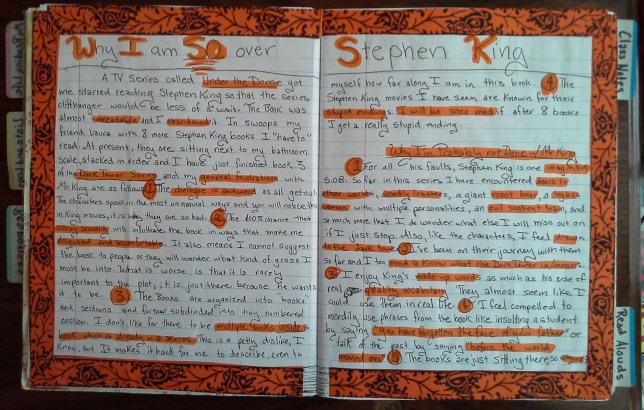 Why I am So over
A TV Series called Under the Dome got
me started reading Stephen King so that the series
cliffhanger would be less of a wait. The Book was
almost unreadable and I abandoned it. In swoops my
friend Laura with 8 more Stephen King books I "have to"
read. At present, they are sitting next to my bathroom
scale, stacked in order and I have just finished book 3
of the Dark Tower Series and my general frustrations with
Mr. King are as follows: 1 The dialogue is awkward as all get out.
The characters speak in the most unnatural ways and you will notice this
in King movies, it is why they are so bad. 2 The 100% chance that
sexuality will infiltrate the book in ways that make me
disgusted and uncomfortable. It also means I cannot suggest
the book to people or they will wonder what kind of gross I
must be into. What is worse is that it is rarely
important to the plot, it is just there because he wants
it to be. 3 The Books are organized into books
and sections and further subdivided into tiny numbered
section. I don't like for there to be multiple books inside a
book which is already in a series. This is a petty dislike, I
know, but it makes it hard for me to describe, even to
Stephen King
myself how far along I am in this book. 4 The
Stephen King movies I have seen are known for their
stupid endings. I will be soo mad if after 8 books
I get a really stupid ending.
Why I'm Probably not Done w/ Mr. King
1 For all his faults, Stephen King is one imaginative
S.O.B. So far in this series I have encountered doors to
other worlds, deadly lobsters, a giant robot bear, a
with multiple personalities, an evil sentient train, and
so much more that I do wonder what else I will miss out on
if I just stop. Also, like the characters, I feel drawn
to the dark tower. 2 I've been on their journey with them
so far and I too need to know what the Dark Tower is/means.
3 I enjoy King's made up words as much as his use of
real quality vocabulary. They almost seem like I
could use them in real life. 4 I feel compelled to
nerdily use phrases from the book like insulting a student
by saying "You have forgotten the face of your father" or
talk of the past by saying "before the world
moved on." 5 The books are just sitting there, so
Class Notes
Read Alouds